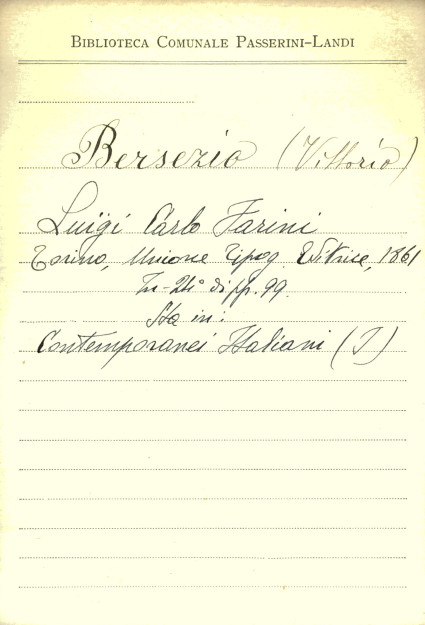 BIBLIOTECA COMUNALE PASSERINI-LANDI
Bersezio (Vittorio)
Luigi Carlo Farini
Torino, Unione Tipog. Editrice, 1861
In-24° di pp. 99.
Sta in:
Contemporanei Italiani (I)